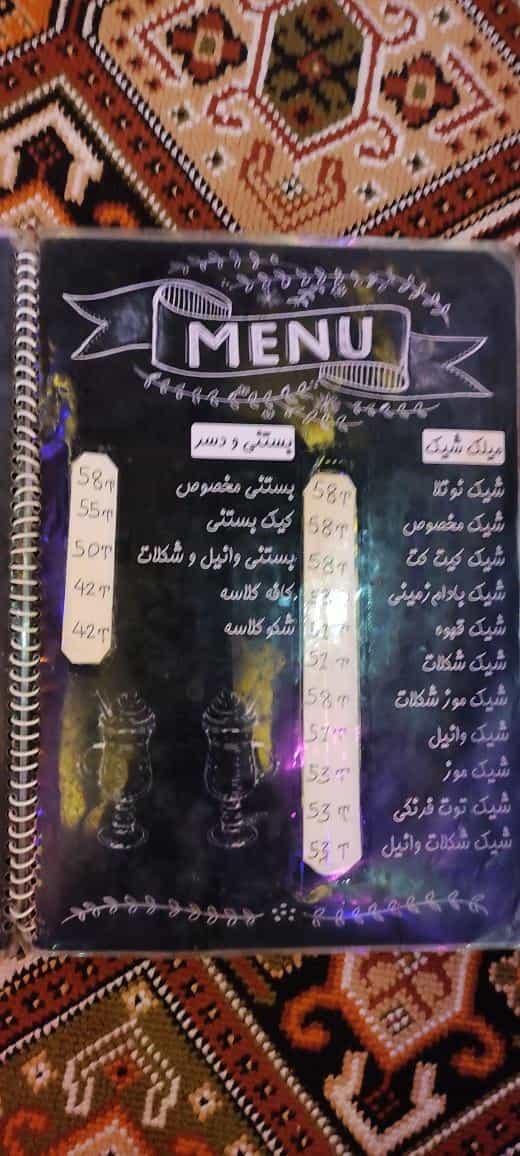 MENU
میلک شیک
شیک نوتلا 58T
شیک مخصوص 58T
شیک کیت کت 58T
شیک بادام زمینی
شیک قهوه
شیک شکلات 52T
شیک موز شکلات 58T
شیک وانیل 57T
شیک موز 53T
شیک توت فرنگی 53T
شیک شکلات وانیل 53T
بستنی و دسر
بستنی مخصوص 58T
کیک بستنی 55T
بستنی وانیل و شکلات 50T
کافه گلاسه 42T
شکو گلاسه 42T